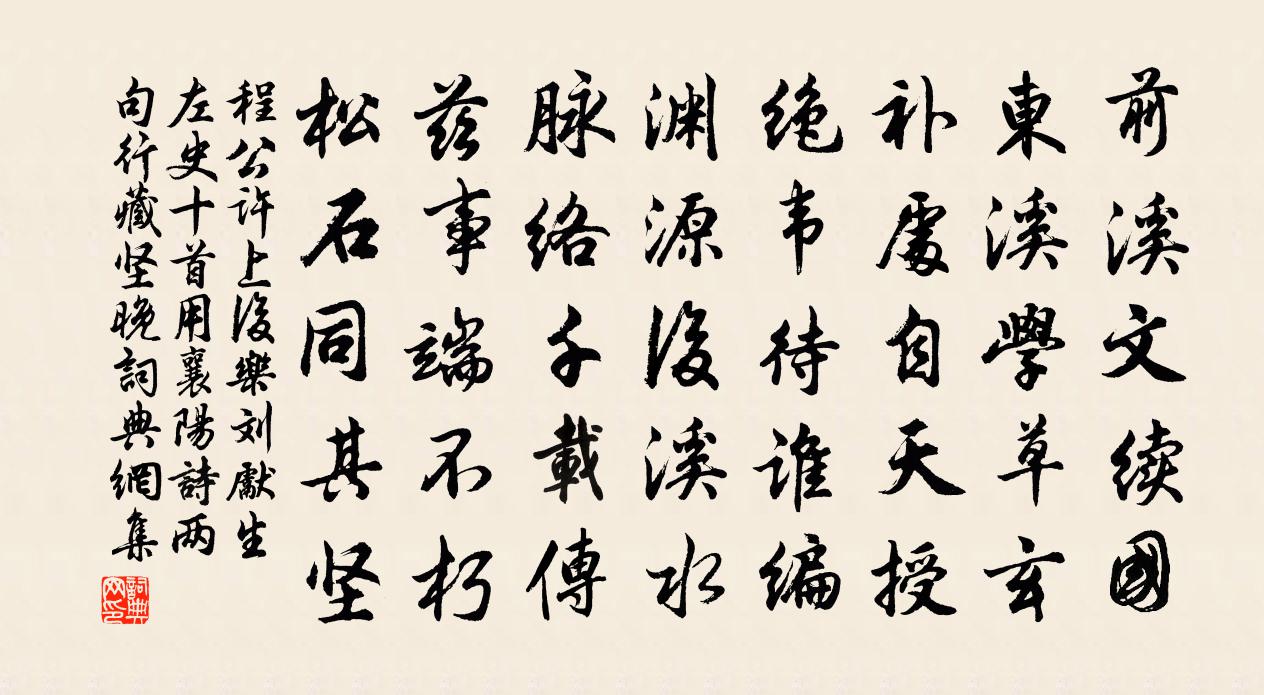 前溪文续國
東溪學草玄
补處自天授
绝韦待谁编
渊源後溪水
脉络千載傳
兹事端不朽
松石同其坚
程公许上後樂刘獻生
左史十首用襄陽詩两
句行藏坚晚詞典網集